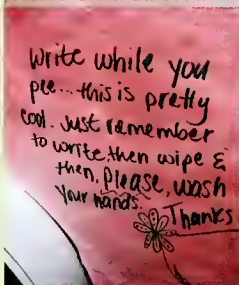 Write while you
pee... this is pretty
cool. Just remember
to write then wipe &
then, please, wash
your hands.
Thanks